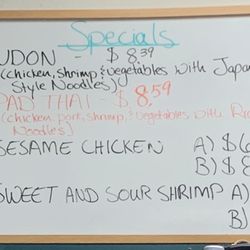 Specials
UDON - $ 8.39
(chicken, shrimp & vegetables with Japan
Style Noodles)
PAD THAI - $ 8.59
(chicken, pork, shrimp, & vegetables with Ri
Noodles)
SESAME CHICKEN A) $6
B) $8
SWEET AND SOUR SHRIMP A)
B)